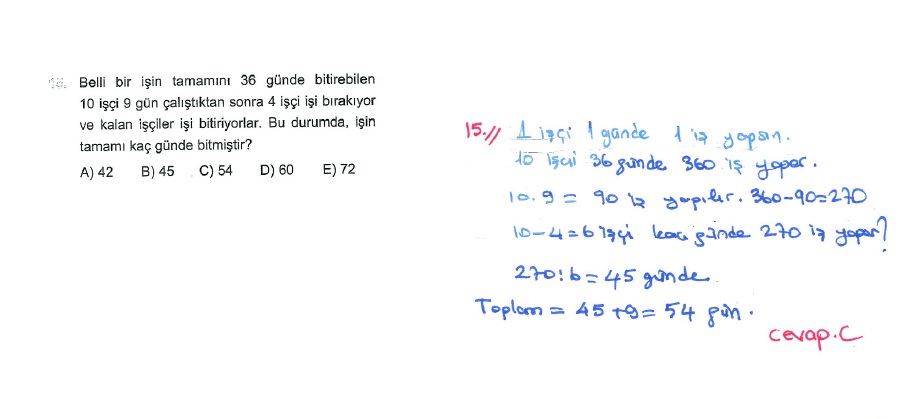 15. Belli bir işin tamamını 36 günde bitirebilen
10 işçi 9 gün çalıştıktan sonra 4 işçi işi bırakıyor
ve kalan işçiler işi bitiriyorlar. Bu durumda, işin
tamamı kaç günde bitmiştir?
A) 42 B) 45 C) 54 D) 60 E) 72
15.// 1 işçi 1 günde 1 iş yapsın.
10 işçi 36 günde 360 iş yapar.
10.9 = 90 iş yapılır. 360-90=270
10-4=6 işçi kaç günde 270 iş yapar?
270:6=45 günde.
Toplam = 45+9= 54 gün.
cevap.C